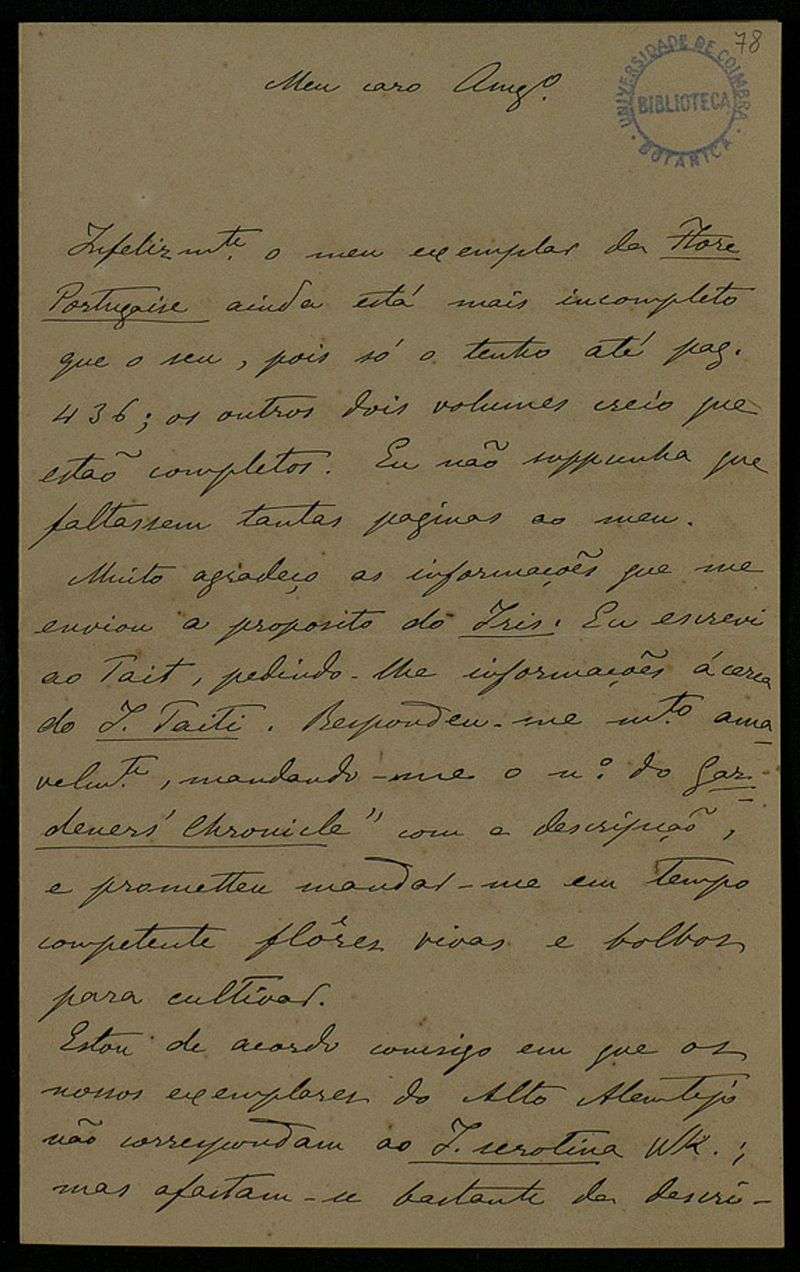 78
UNIVERSIDADE DE COIMBRA
BIBLIOTECA
BOTANICA
Meu caro Amgº.
Infelizmte. o meu exemplar da Flore
Portugaise ainda está mais incompleto
que o seu, pois só o tenho até pag.
436; os outros dois volumes creio que
estaõ completos. Eu não suppunha que
faltassem tantas paginas ao meu.
Muito agradeço as informações que me
enviou a proposito do Iris. Eu escrevi
ao Tait, pedindo-lhe informações ácerca
do I. Taiti. Respondeu-me mto. ama-
velmte., mandando-me o nº. do Gar-
deners' Chronicle" com a descripçaõ,
e prometteu mandar-me em tempo
competente flôres vivas e bolbos
para cultivar.
Estou de acordo comsigo em que os
nossos exemplares do Alto Alemtejo
não correspondam ao I. serotina Wk.;
mas afastam-se bastante da descri-